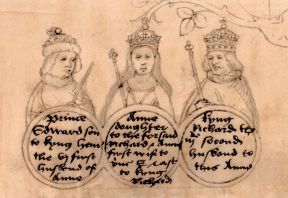 Prince
Edward son
to kyng hen
the vj first
husband of
Anne
Anne
doughter
to the forsaid
Richard & Anne
first wife to
pric E & last
to kyng
Richard
kyng
Richard the
iij second
husbond to
this Anne